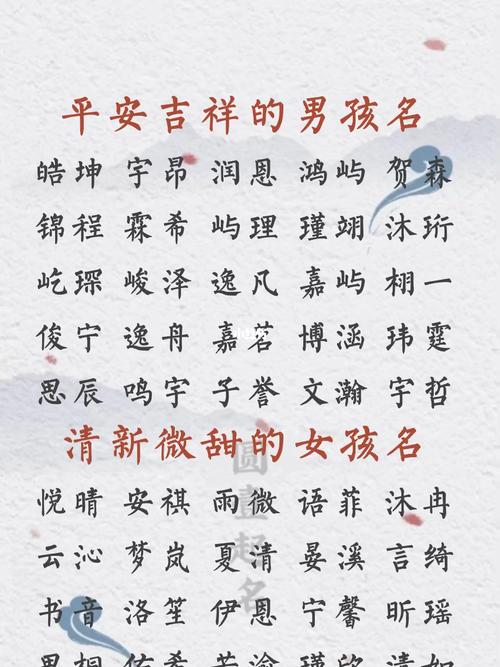 平安吉祥的男孩名
皓坤 宇昂 润恩 鸿屿 贺森
锦程 霖希 屿理 瑾翊 沐珩
屹琛 峻泽 逸凡 嘉屿 栩一
俊宁 逸舟 嘉茗 博涵 玮霆
思辰 鸣宇 子誉 文瀚 宇哲
清新微甜的女孩名
悦晴 安祺 雨微 语菲 沐冉
云沁 梦岚 夏清 晏溪 言绮
书音 洛笙 伊恩 宁馨 昕瑶
圆壹起名